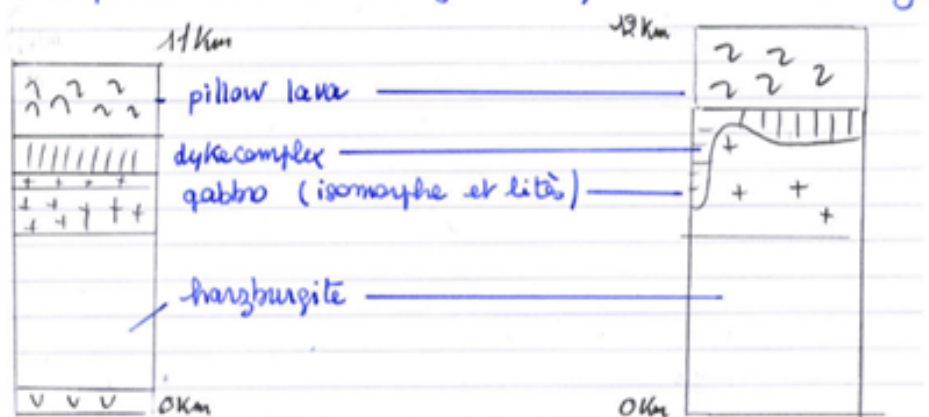 11 Km 12 Km
pillow lava
dykecomplex
gabbro (isomorphe et lités)
harzburgite
0 Km 0 Km